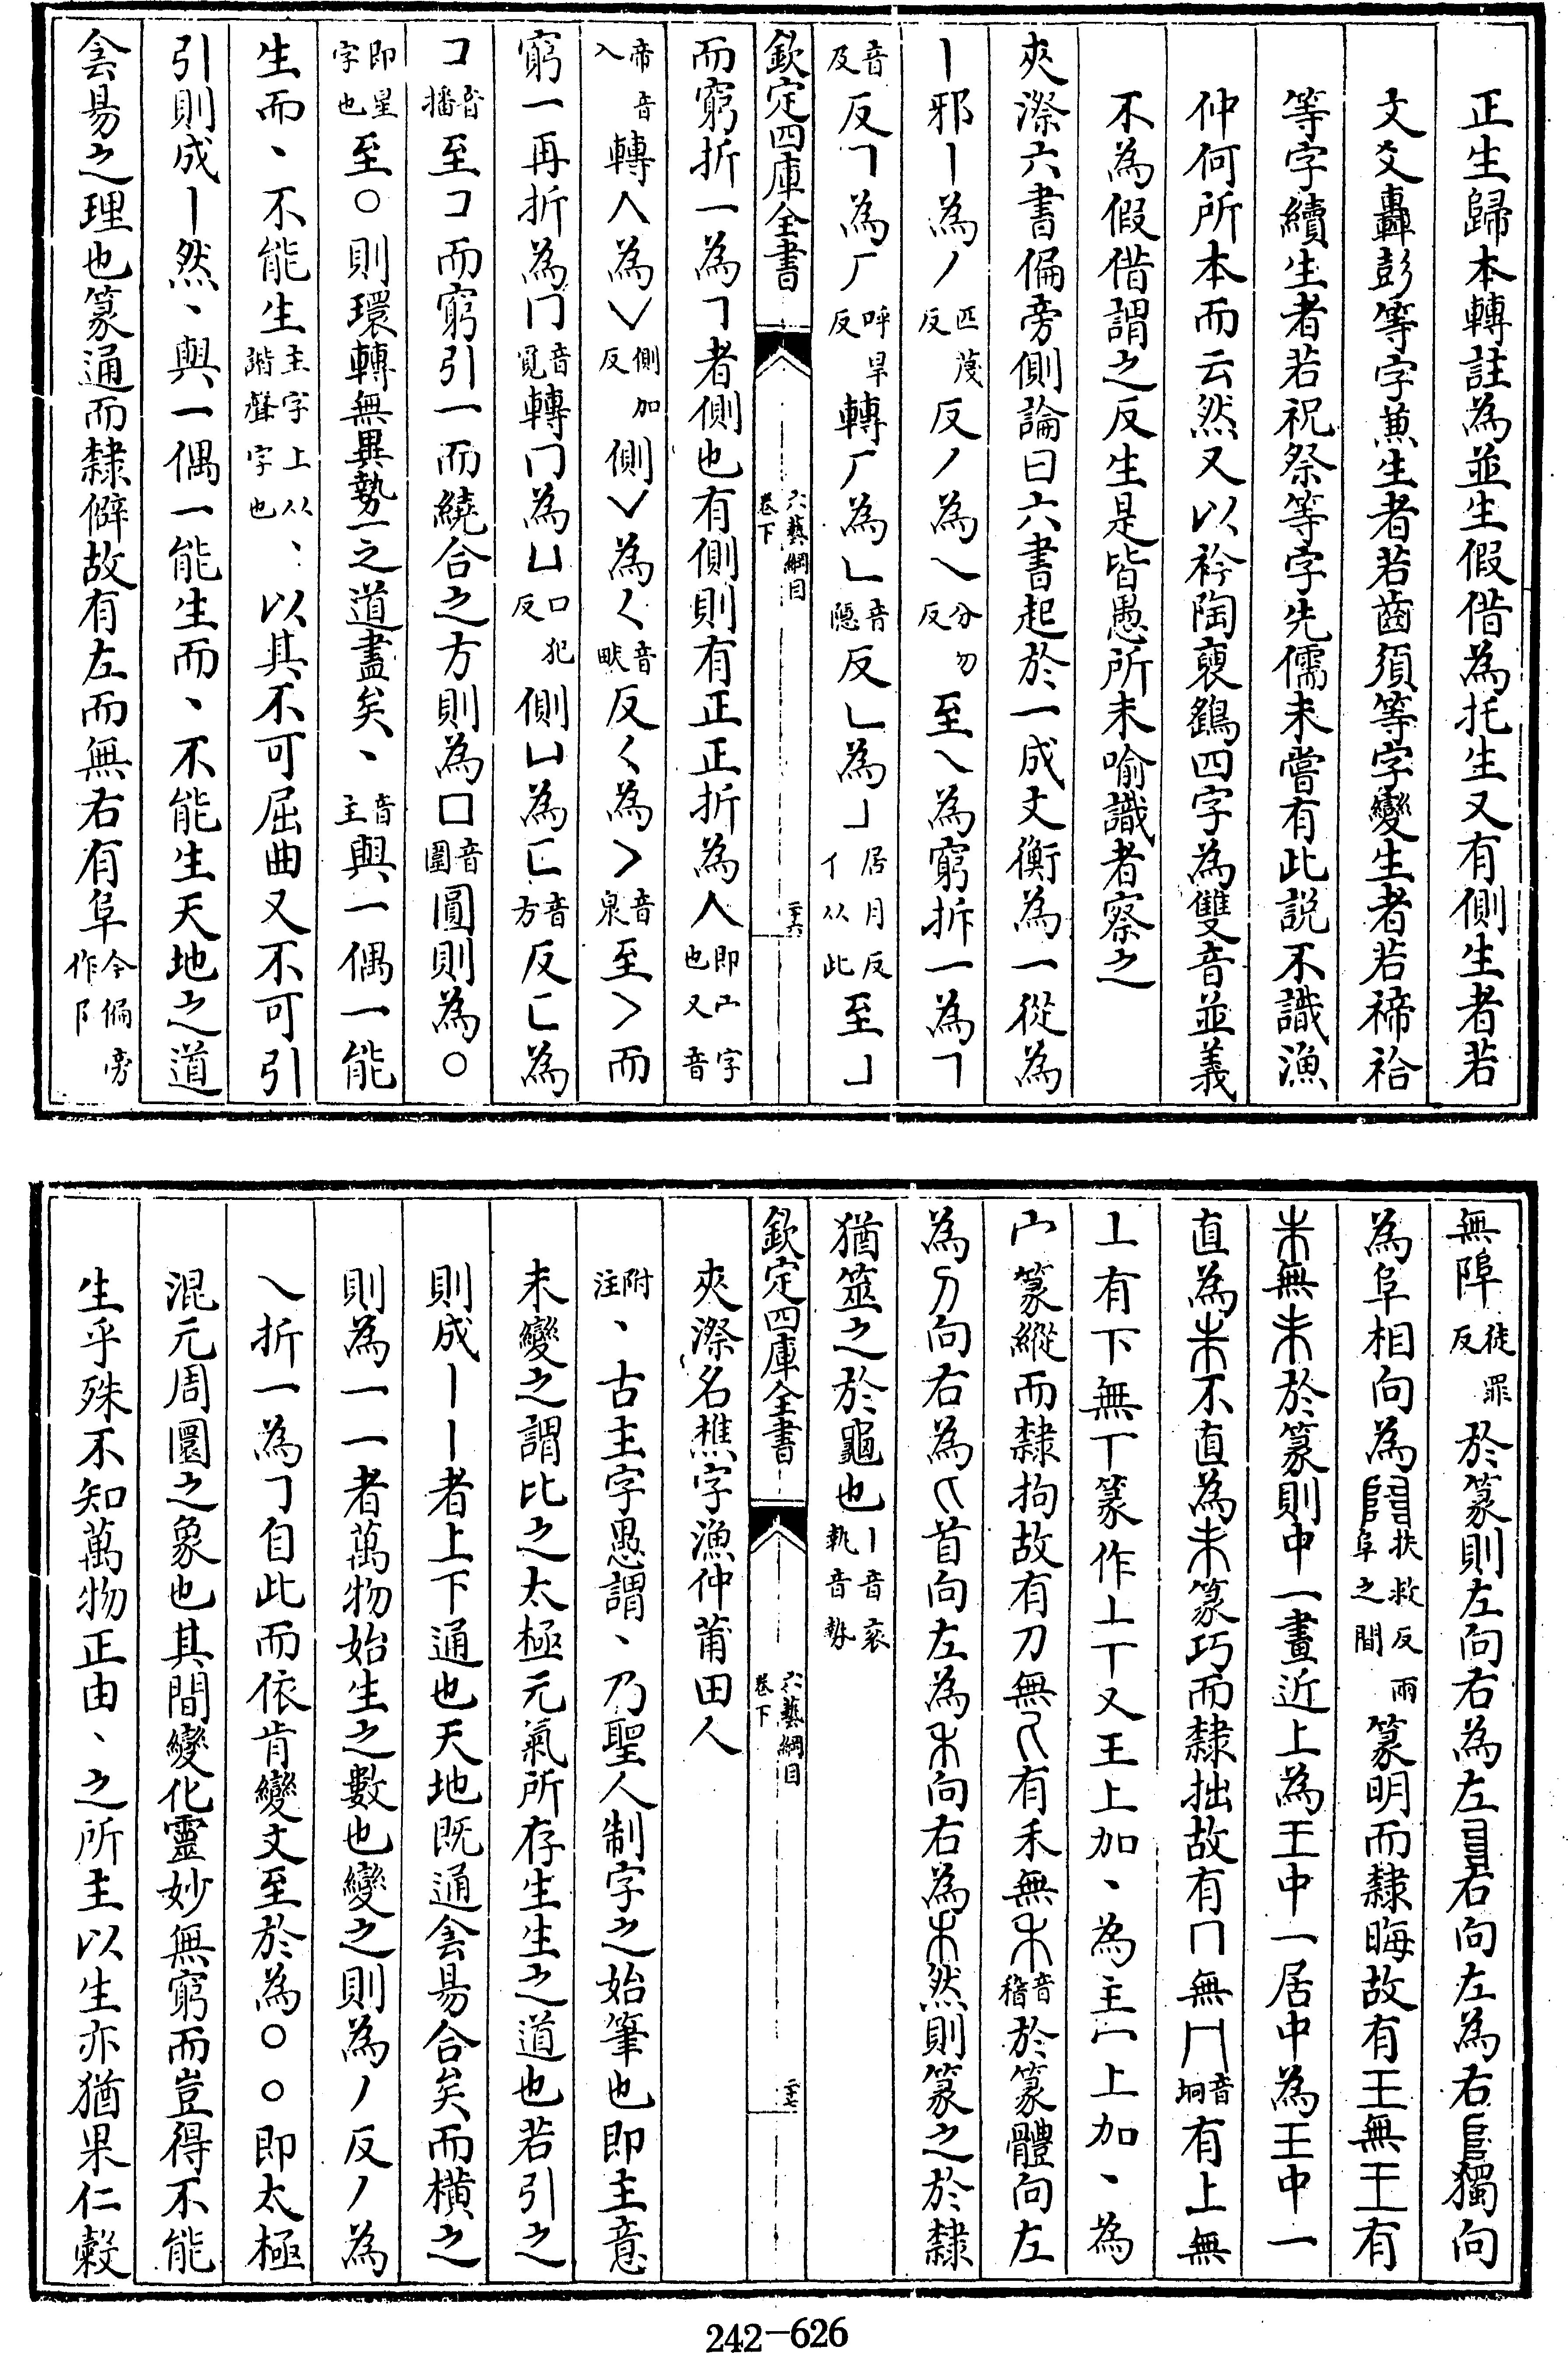 正生歸本轉註為並生假借為托生又有側生者若
文爻轟彭等字兼生者若齒須等字變生者若禘祫
等字續生者若祝祭等字先儒未嘗有此説不識漁
仲何所本而云然又以衿陶裒鶴四字為雙音並義
不為假借謂之反生是皆愚所未喻識者察之
夾漈六書偏旁側論曰六書起於一成文衡為一從為
丨邪丨為丿匹蔑反反丿為乀分勿反至乀為窮折一為𠃍
音及反𠃍為𠂆呼旱反轉𠂆為𠃊音隱反𠃊為亅居月反从此至亅
欽定四庫全書 六藝綱目卷下 三六
而窮折一為𠃍者側也有側則有正正折為人即宀字也又音
帝音入轉人為∨側加反側∨為く音畎反く為>音泉至>而
窮一再折為冂音覓轉冂為凵口犯反側凵為匚音方反匚為
コ音播至コ而窮引一而繞合之方則為囗音圍圓則為○
即星字也至○則環轉無異勢一之道盡矣丶音主與一偶一能
生而丶不能生主字上从丶諧聲字也以其不可屈曲又不可引
引則成丨然丶與一偶一能生而丶不能生天地之道
侌昜之理也篆通而隸僻故有左而無右有阜今偏旁作阝
無𨸏徒罪反於篆則左向右為左𠂤右向左為右獨向
為阜相向為𨺅扶救反兩阜之間篆明而隸晦故有王無王有
朱無朱於篆則中一畫近上為王中一居中為王中一
直為朱不直為朱篆巧而隸拙故有冂無冂音坰有上無
丄有下無丅篆作丄丅又王上加丶為主冖上加丶為
宀篆縱而隸拘故有刀無有禾無𥝌音稽於篆體向左
為向右為首向左為禾向右為𥝌然則篆之於隸
猶筮之於龜也丨音衮執音勢
欽定四庫全書 六藝綱目卷下 三七
夾漈名樵字漁仲莆田人
附注丶古主字愚謂丶乃聖人制字之始筆也即主意
未變之謂比之太極元氣所存生生之道也若引之
則成丨丨者上下通也天地既通侌昜合矣而橫之
則為一一者萬物始生之數也變之則為丿反丿為
乀折一為𠃍自此而依肯變文至於為○○即太極
混元周圜之象也其間變化靈妙無窮而豈得不能
生乎殊不知萬物正由丶之所主以生亦猶果仁穀
242-626